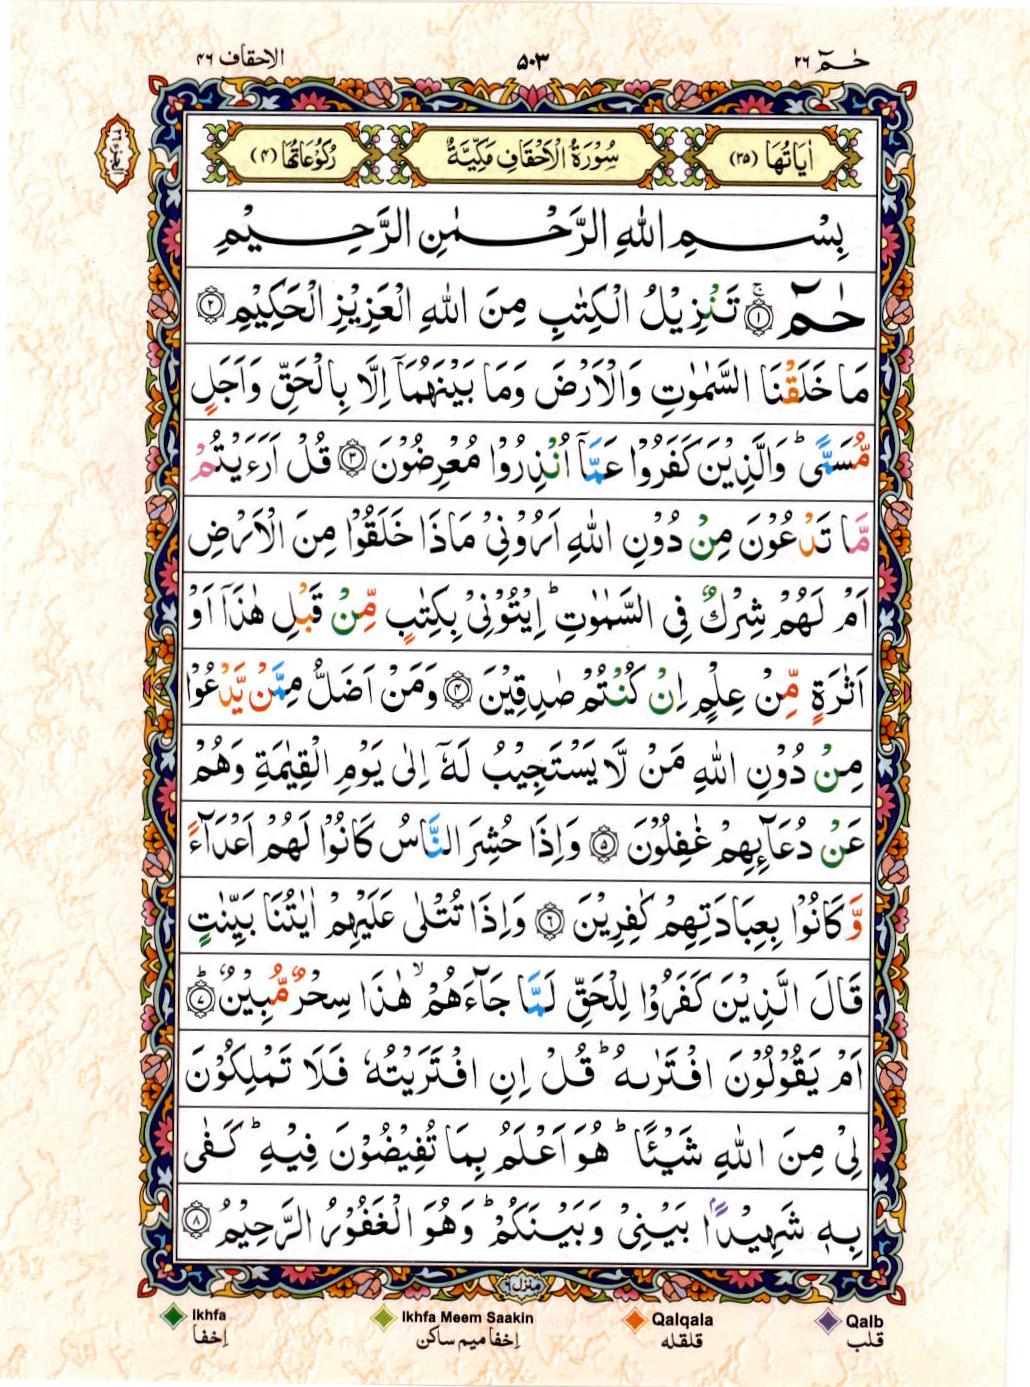 حٰمٓ ٢٦
٥٠٣
الاحقاف ٤٦
اٰيَاتُهَا (٣٥)
سُوْرَةُ الْاَحْقَافِ مَكِّيَّةٌ
رُكُوْعَاتُهَا (٤)
الجزء ٢٦
بِسْمِ اللّٰهِ الرَّحْمٰنِ الرَّحِيْمِ
حٰمٓ ۚ ﴿١﴾ تَنْزِيْلُ الْكِتٰبِ مِنَ اللّٰهِ الْعَزِيْزِ الْحَكِيْمِ ﴿٢﴾
مَا خَلَقْنَا السَّمٰوٰتِ وَالْاَرْضَ وَمَا بَيْنَهُمَاۤ اِلَّا بِالْحَقِّ وَاَجَلٍ
مُّسَمًّى ؕ وَالَّذِيْنَ كَفَرُوْا عَمَّاۤ اُنْذِرُوْا مُعْرِضُوْنَ ﴿٣﴾ قُلْ اَرَءَيْتُمْ
مَّا تَدْعُوْنَ مِنْ دُوْنِ اللّٰهِ اَرُوْنِيْ مَاذَا خَلَقُوْا مِنَ الْاَرْضِ
اَمْ لَهُمْ شِرْكٌ فِى السَّمٰوٰتِ ؕ اِيْتُوْنِيْ بِكِتٰبٍ مِّنْ قَبْلِ هٰذَاۤ اَوْ
اَثٰرَةٍ مِّنْ عِلْمٍ اِنْ كُنْتُمْ صٰدِقِيْنَ ﴿٤﴾ وَمَنْ اَضَلُّ مِمَّنْ يَّدْعُوْا
مِنْ دُوْنِ اللّٰهِ مَنْ لَّا يَسْتَجِيْبُ لَهٗۤ اِلٰى يَوْمِ الْقِيٰمَةِ وَهُمْ
عَنْ دُعَآئِهِمْ غٰفِلُوْنَ ﴿٥﴾ وَاِذَا حُشِرَ النَّاسُ كَانُوْا لَهُمْ اَعْدَآءً
وَّكَانُوْا بِعِبَادَتِهِمْ كٰفِرِيْنَ ﴿٦﴾ وَاِذَا تُتْلٰى عَلَيْهِمْ اٰيٰتُنَا بَيِّنٰتٍ
قَالَ الَّذِيْنَ كَفَرُوْا لِلْحَقِّ لَمَّا جَآءَهُمْ ۙ هٰذَا سِحْرٌ مُّبِيْنٌ ؕ ﴿٧﴾
اَمْ يَقُوْلُوْنَ افْتَرٰىهُ ؕ قُلْ اِنِ افْتَرَيْتُهٗ فَلَا تَمْلِكُوْنَ
لِيْ مِنَ اللّٰهِ شَيْئًا ؕ هُوَ اَعْلَمُ بِمَا تُفِيْضُوْنَ فِيْهِ ؕ كَفٰى
بِهٖ شَهِيْدًۢا بَيْنِيْ وَبَيْنَكُمْ ؕ وَهُوَ الْغَفُوْرُ الرَّحِيْمُ ﴿٨﴾
منزل ٦
Ikhfa
اِخفا
Ikhfa Meem Saakin
اِخفا میم ساکن
Qalqala
قلقله
Qalb
قلب